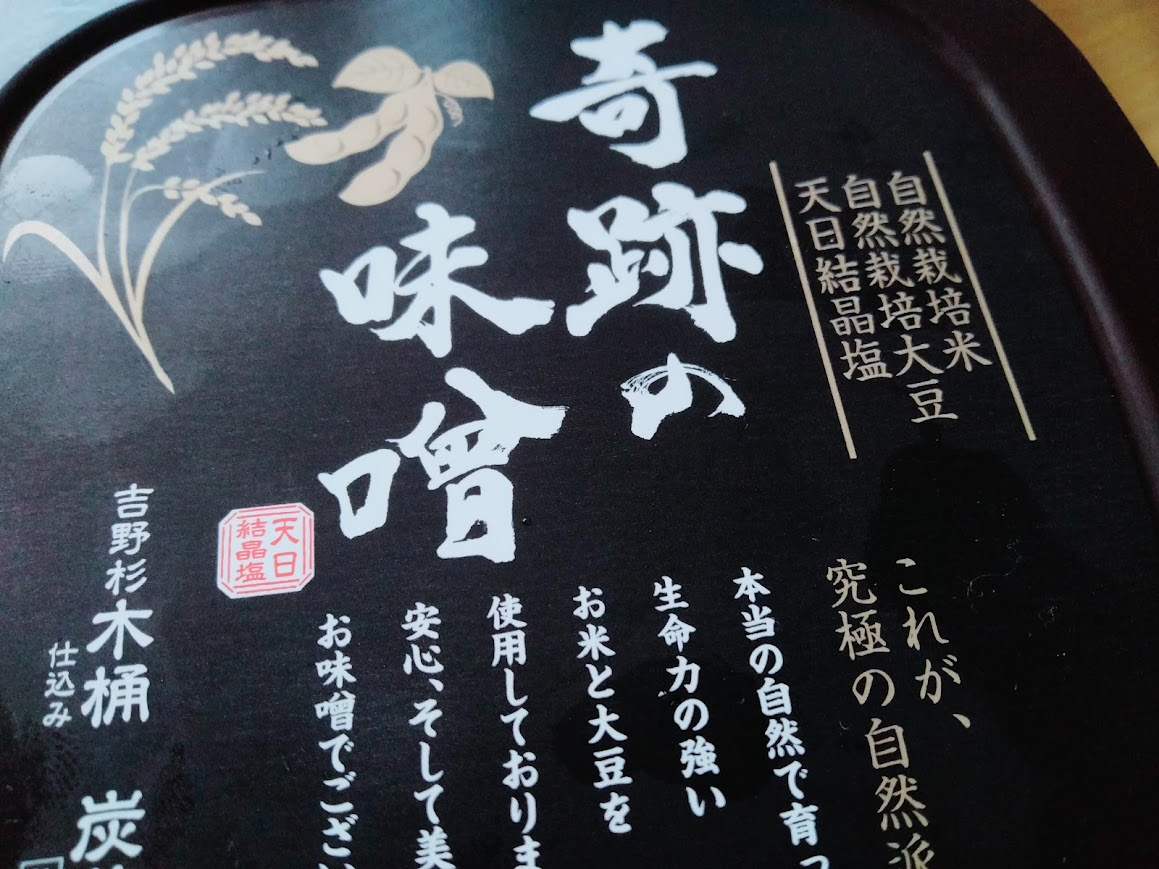 自然栽培米
自然栽培大豆
天日結晶塩
奇跡の
味噌
天日
結晶塩
これが、
究極の自然派
本当の自然で育っ
生命力の強い
お米と大豆を
使用しておりま
安心、そして美
お味噌でござい
吉野杉木桶
仕込み
炭